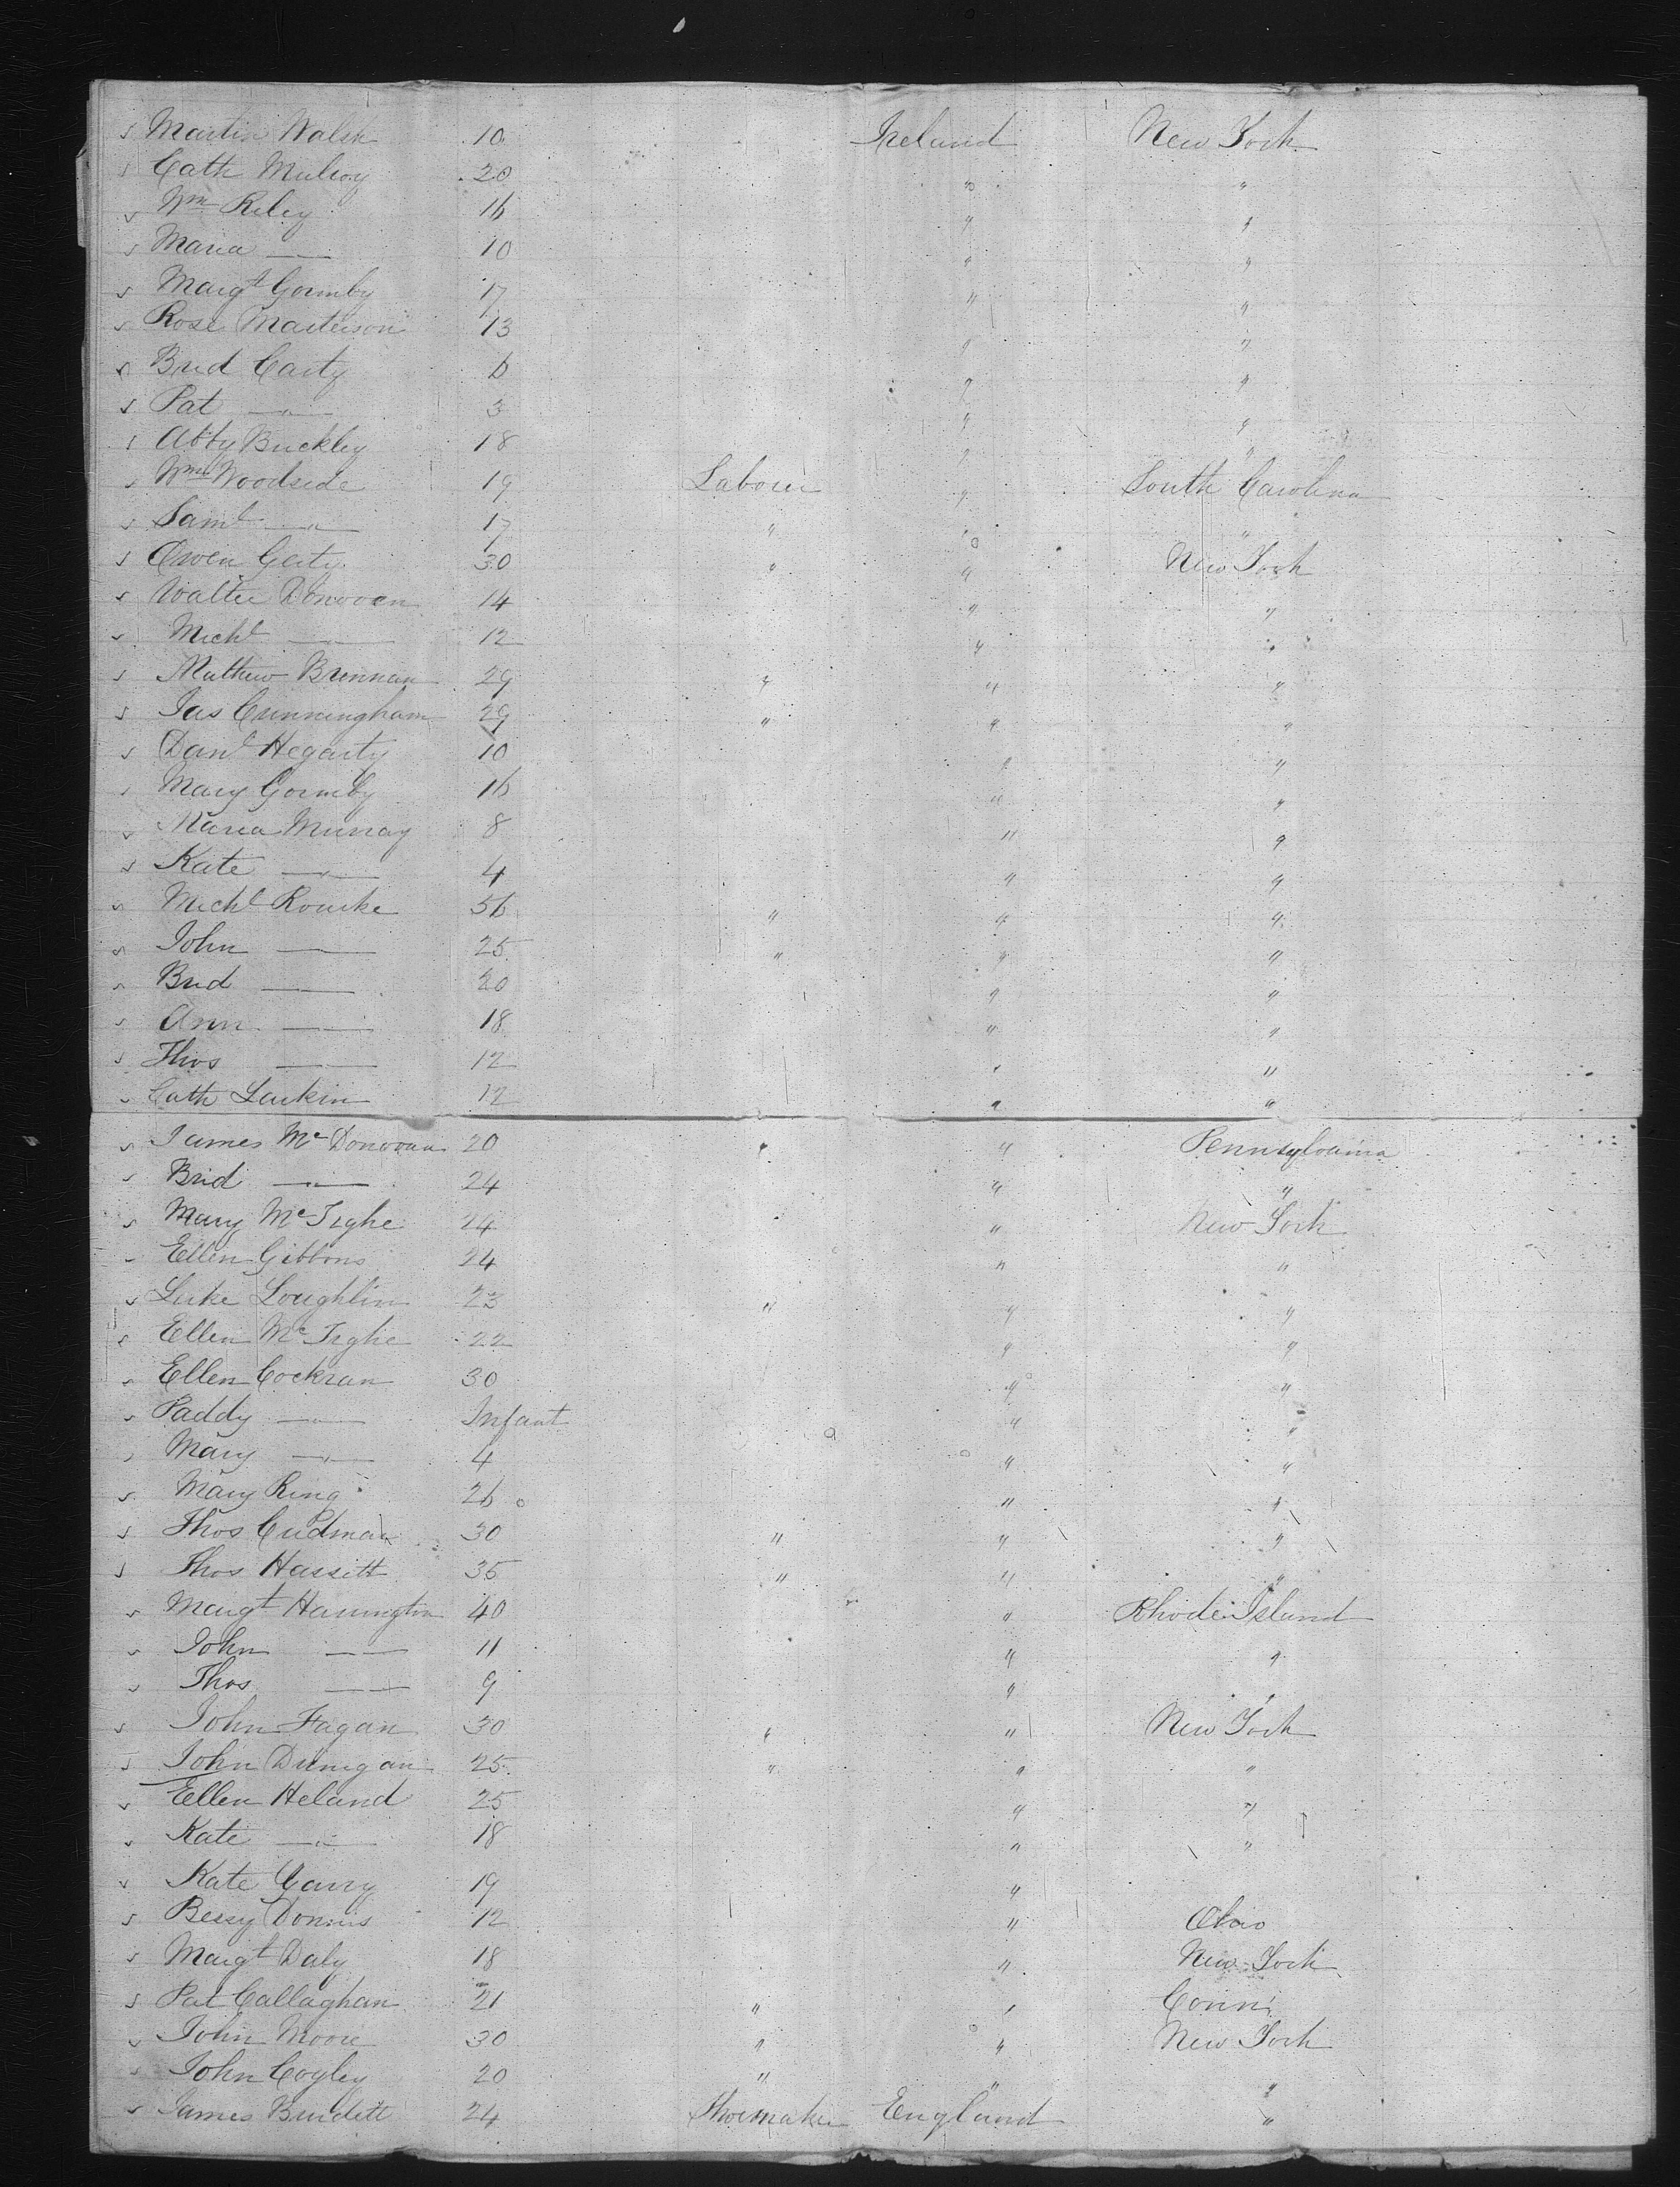 Martin Walsh 10 Ireland New York
Cath Mulroy 20 " "
Wm Riley 16 " "
Maria —"— 10 " "
Margt Gormby 17 " "
Rose Masterson 13 " "
Brid Carty 6 " "
Pat —"— 3 " "
Abby Buckley 18 " "
Wm Woodside 19 Labourer " South Carolina
Saml —"— 17 " " "
Owen Gerty 30 " " New York
Walter Donovan 14 " "
Michl —"— 12 " "
Mathew Brennan 29 " " "
Jas Cunningham 29 " " "
Danl Hegarty 10 " "
Mary Gormby 16 " "
Maria Murray 8 " "
Kate —"— 4 " "
Michl Rourke 56 " " "
John —"— 25 " " "
Brid —"— 20 " "
Ann —"— 18 " "
Thos —"— 12 " "
Cath Larkin 12 " "
James McDonovan 20 " " Pennsylvania
Brid —"— 24 " "
Mary McTighe 24 " New York
Ellen Gibbons 24 " "
Luke Loughlin 23 " " "
Ellen McTighe 22 " "
Ellen Cockran 30 " "
Paddy —"— Infant " "
Mary —"— 4 " "
Mary Ring 26 " "
Thos Cudman 30 " " "
Thos Hassitt 35 " " "
Margt Harrington 40 " Rhode Island
John —"— 11 " "
Thos —"— 9 " "
John Fagan 30 " " New York
John Dunigan 25 " " "
Ellen Heland 25 " "
Kate —"— 18 " "
Kate Garry 19 "
Bessy Donnis 12 " Ohio
Margt Daly 18 " New York
Pat Callaghan 21 " " Conn
John Moore 30 " " New York
John Cogley 20 " " "
James Burdett 24 Shoemaker England "